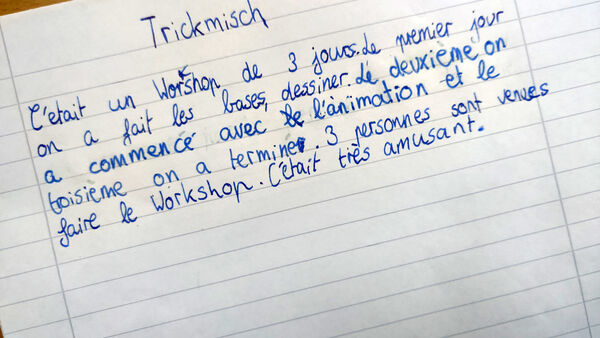 Trickmisch
C'était un Workshop de 3 jours. Le premier jour
on a fait les bases, dessiner. Le deuxième on
a commencé avec l'animation et le
troisième on a terminé. 3 personnes sont venues
faire le Workshop. C'était très amusant.